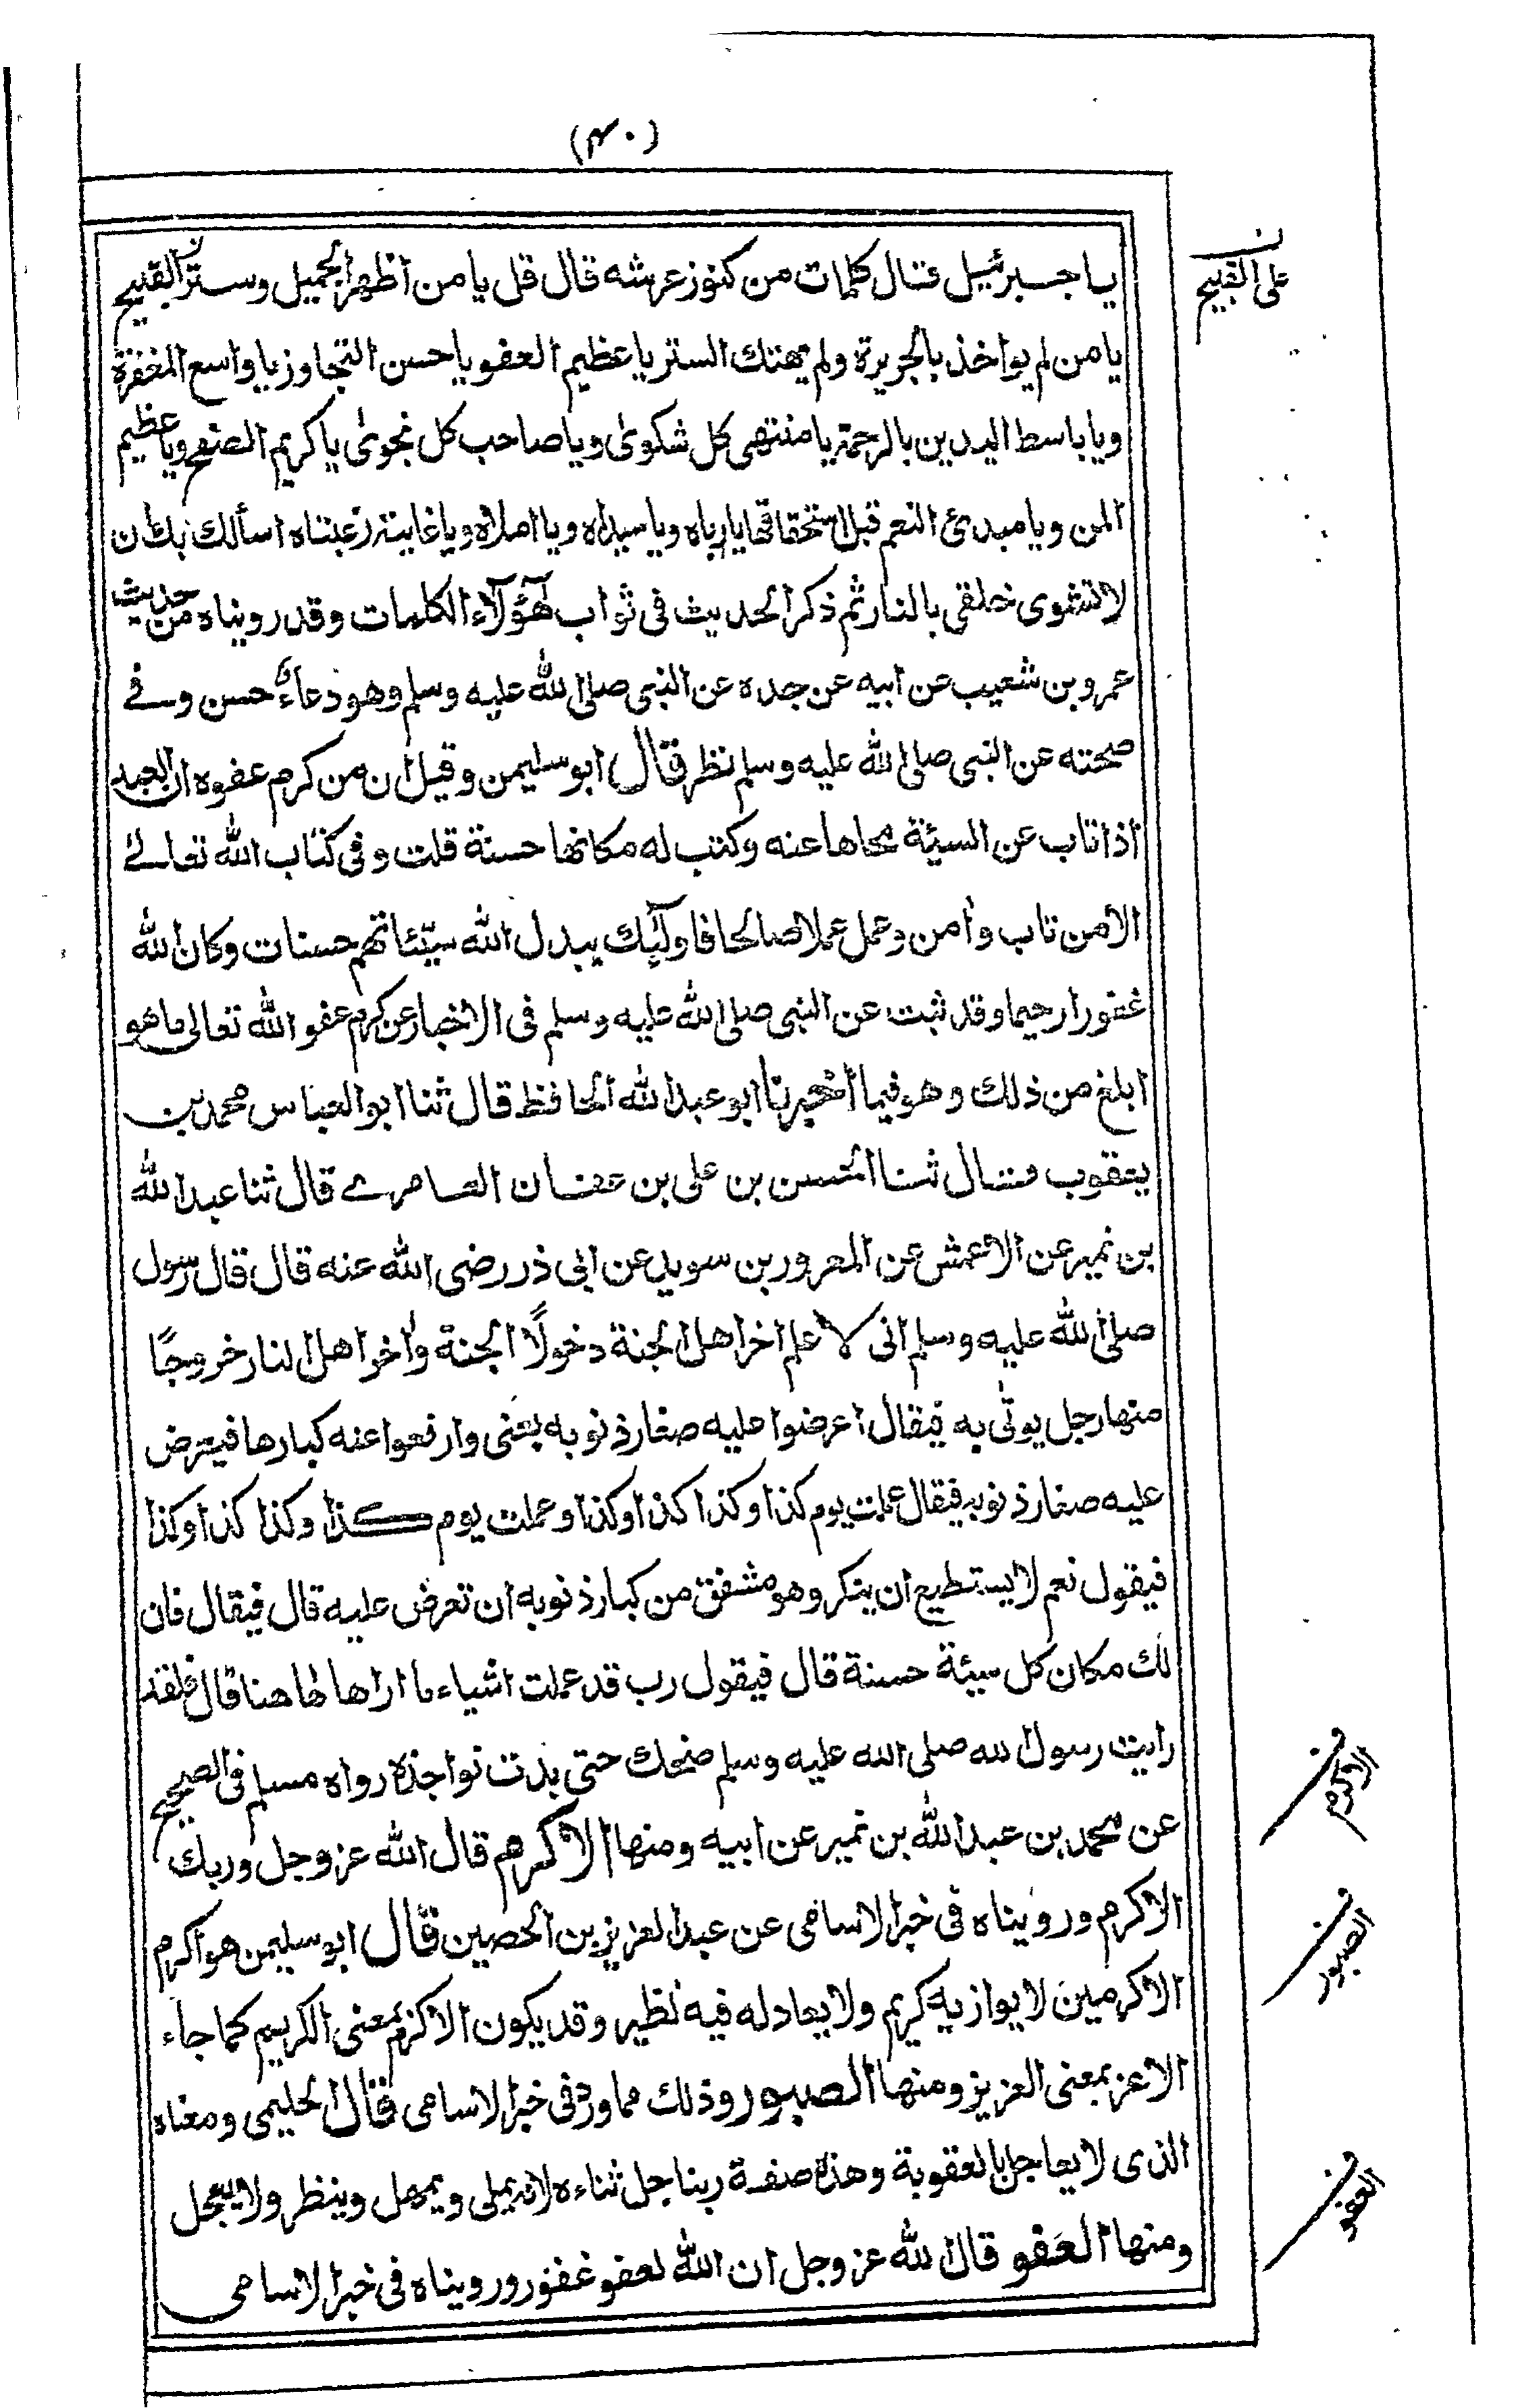 (٤٠)
يا جبرئيل قال كلمات من كنوز عرشه قال قل يا من أظهر الجميل وستر القبيح
ن
على القبيح
يا من لم يواخذ بالجريرة ولم يهتك الستر يا عظيم العفو يا حسن التجاوز يا واسع المغفرة
ويا باسط اليدين بالرحمة يا منتهى كل شكوى ويا صاحب كل نجوى يا كريم الصفح ويا عظيم
المن ويا مبدئ النعم قبل استحقاقها يا رباه ويا سيداه ويا املاه ويا غاية رغبتاه اسألك بك ان
لا تشوى خلقى بالنار ثم ذكر الحديث فى ثواب هؤلآء الكلمات وقد رويناه من حديث
عمرو بن شعيب عن ابيه عن جده عن النبى صلى الله عليه وسلم وهو دعاء حسن وفے
صحته عن النبى صلى الله عليه وسلم نظر قال ابو سليمن وقيل ان من كرم عفوه ان العبد
اذا تاب عن السيئة محاها عنه وكتب له مكانها حسنة قلت وفى كتاب الله تعالىٰ
الا من تاب وأمن وعمل عملا صالحا فاولٰٓئك يبدل الله سيّئاتهم حسنات وكان الله
غفورا رحيما وقد ثبت عن النبى صلى الله عليه وسلم فى الاخبار عن كرم عفو الله تعالى ما هو
ابلغ من ذلك وهو فيما أخبرنا ابو عبد الله الحافظ قال ثنا ابو العباس محمد بن
يعقوب قال ثنا الحسن بن على بن عفان العامرے قال ثنا عبد الله
بن نمير عن الاعمش عن المعرور بن سويد عن ابى ذر رضى الله عنه قال قال رسول
صلى الله عليه وسلم انى لا علم اخر اهل الجنة دخولًا الجنة وأخر اهل النار خروجًا
منها رجل يوتٰى به فيقال اعرضوا عليه صغار ذنوبه يعنى وارفعوا عنه كبارها فيعرض
عليه صغار ذنوبه فيقال عملت يوم كذا وكذا كذا وكذا وعملت يوم كذا وكذا كذا وكذا
فيقول نعم لا يستطيع ان ينكر وهو مشفق من كبار ذنوبه ان تعرض عليه قال فيقال فان
لك مكان كل سيئة حسنة قال فيقول رب قد عملت اشياء ما اراها هاهنا قال فلقد
رايت رسول الله صلى الله عليه وسلم ضحك حتى بدت نواجذه رواه مسلم فى الصحيح
عن محمد بن عبد الله بن نمير عن ابيه ومنها الاكرم قال الله عز وجل وربك
الاكرم
الاكرم ورويناه فى خبر الاسامى عن عبد العزيز بن الحصين قال ابو سليمن هو اكرم
الاكرمين لا يوازيه كريم ولا يعادله فيه نظير وقد يكون الاكرم بمعنى الكريم كما جاء
الاعز بمعنى العزيز ومنها الصبور وذلك مما ورد فى خبر الاسامى قال الحليمى ومعناه
الصبور
الذى لا يعاجل بالعقوبة وهذه صفة ربنا جل ثناءه لانه يملى ويمهل وينظر ولا يعجل
ومنها العفو قال الله عز وجل ان الله لعفو غفور ورويناه فى خبر الاسامى
العفو